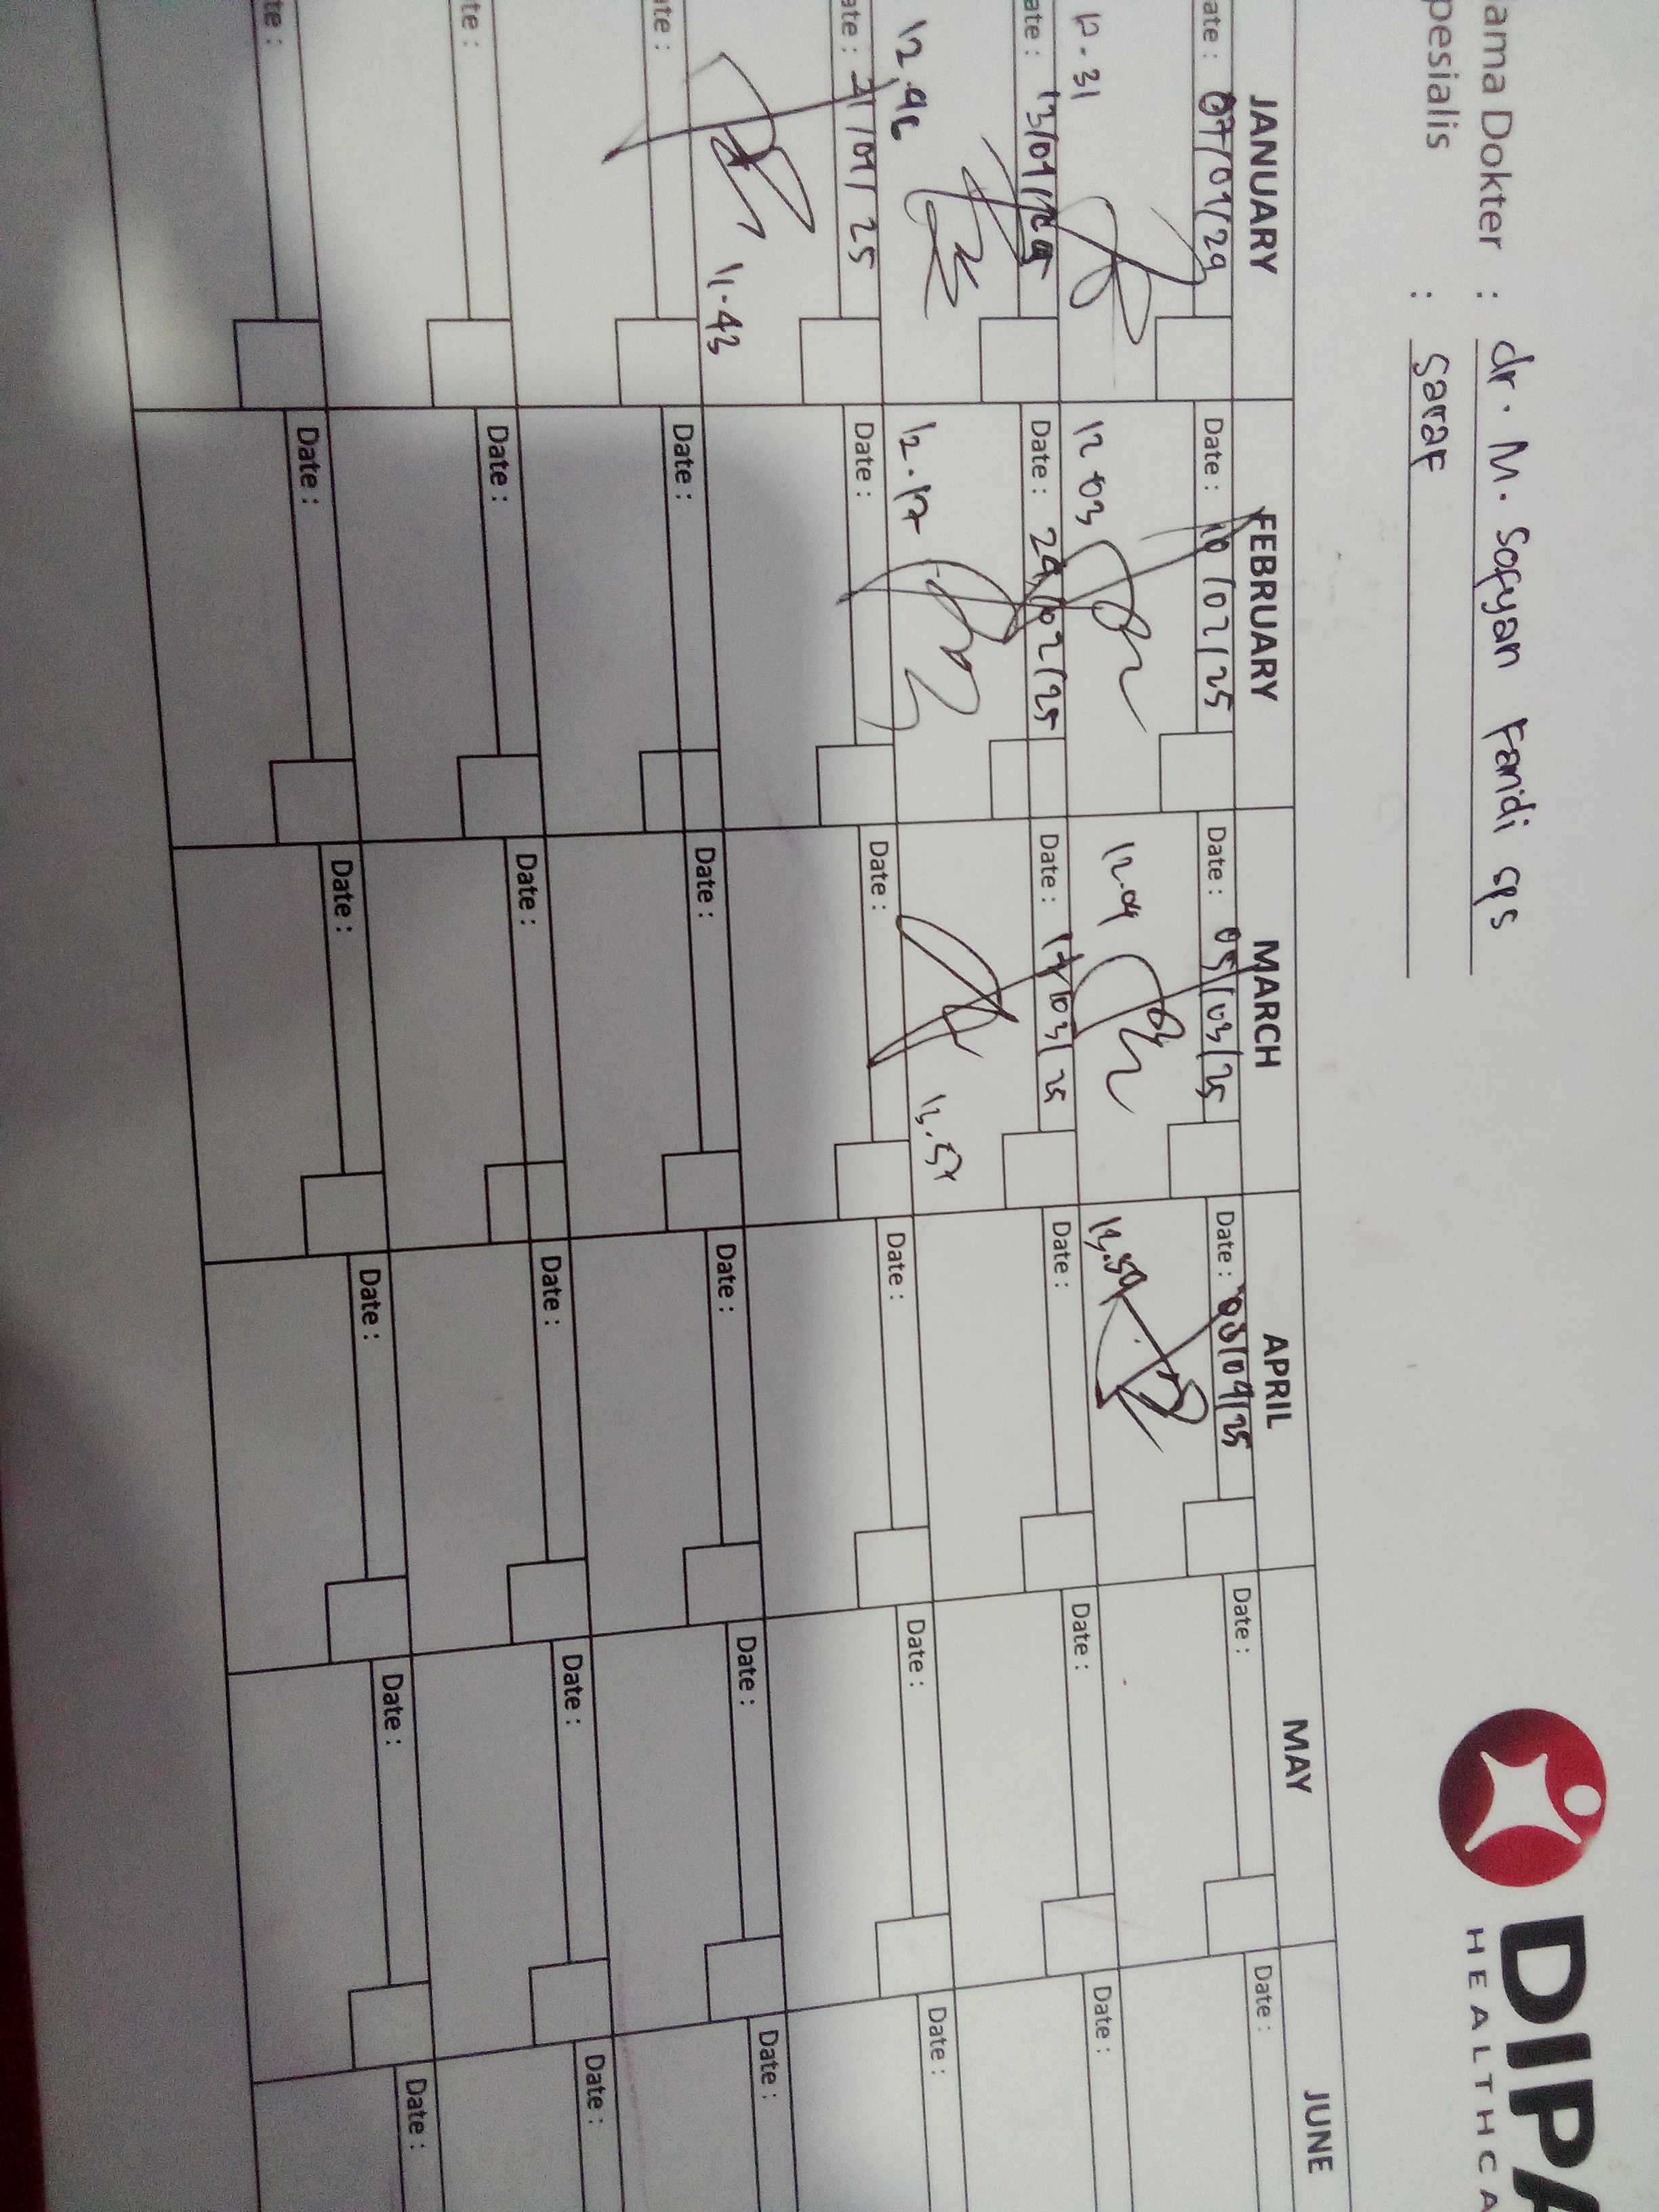 DIPA
HEALTHCA
ama Dokter : dr. M. Sofyan Fandi SpS
pesialis : saraf
JANUARY FEBRUARY MARCH APRIL MAY JUNE
ate : 07/01/24 Date : 10/02/25 Date : 05/03/25 Date : 08/04/25 Date : Date :
12.31 12.03 12.04 13.54
ate : 13/01/25 Date : 24/02/25 Date : 17/03/25 Date : Date : Date :
12.46 12.17 13.54
ate : 21/01/25 Date : Date : Date : Date : Date :
11.43
ate : Date : Date : Date : Date : Date :
te : Date : Date : Date : Date : Date :
te : Date : Date : Date : Date : Date :